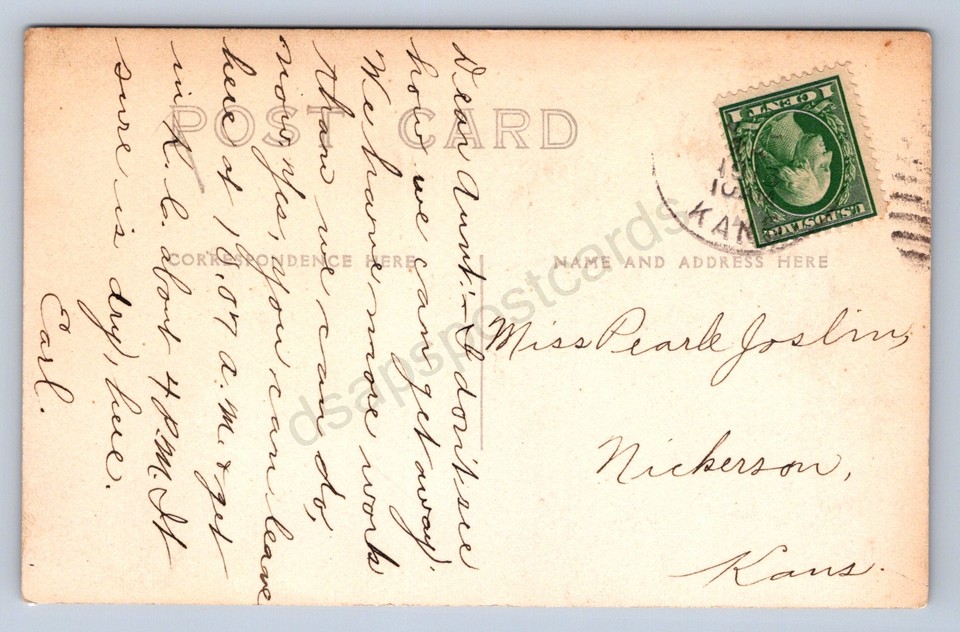 POST CARD
CORRESPONDENCE HERE
NAME AND ADDRESS HERE
Dear Aunt:- I don't see
how we can get away
We have more work
than we can do,
now. Yes, you can leave
here at 8:07 a.M. & get
in K.C. about 4 P.M. It
sure is dry, here.
Earl.
Miss Pearle Joslin,
Nickerson,
Kans.
1 CENT 1
U.S. POSTAGE
KAN
dsapspostcards